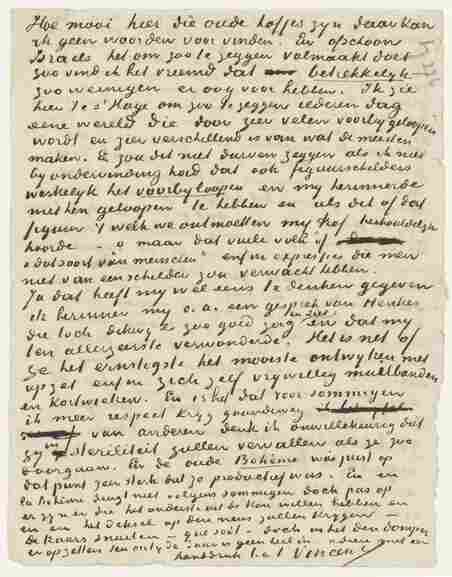 Hoe mooi hier die oude hofjes zijn daar kan
ik geen woorden voor vinden. En ofschoon
Israels het om zoo te zeggen volmaakt doet
zoo vind ik het vreemd dat betrekkelijk
zoo weinigen er oog voor hebben. Ik zie
hier te s' Hage om zoo te zeggen iederen dag
eene wereld die door zeer velen voorbijgeloopen
wordt en zeer verschillend is van wat de meesten
maken. & zou dit niet durven zeggen als ik niet
bij ondervinding had dat ook figuurschilders
werkelijk het voorbijloopen en mij herinnerde
met hen geloopen te hebben en als dit of dat
figuur 't welk we ontmoetten mij trof herhaaldelijk
hoorde – o maar dat vuile volk" of
"dat soort van menschen" enfin expressies die men
niet van een schilder zou verwacht hebben.
Ja dat heeft mij wel eens te denken gegeven
ik herinner mij o.a. een gesprek van Henkes
die toch dikwijls zoo goed zag en ziet en dat mij
ten allerzeerste verwonderde. Het is net of
ze het ernstigste het mooiste ontwijken met
opzet enfin zich zelf vrijwillig muilbanden
en kortwieken. En is het dat voor sommigen
ik meer respect krijg gaandeweg
van anderen denk ik onwillekeurig dat
zij in steriliteit zullen vervallen als ze zoo
doorgaan. En de oude Bohême was juist op
dat punt zeer sterk dat ze productief was. En
la Bohême deugt niet volgens sommigen doch pas op
er zijn er die het onderste uit de kan willen hebben en
en het deksel op den neus zullen krijgen –
de kaars snuiten – que soit – doch om het den domper
er op zetten ten ontijde
handdruk t.a.t. Vincent